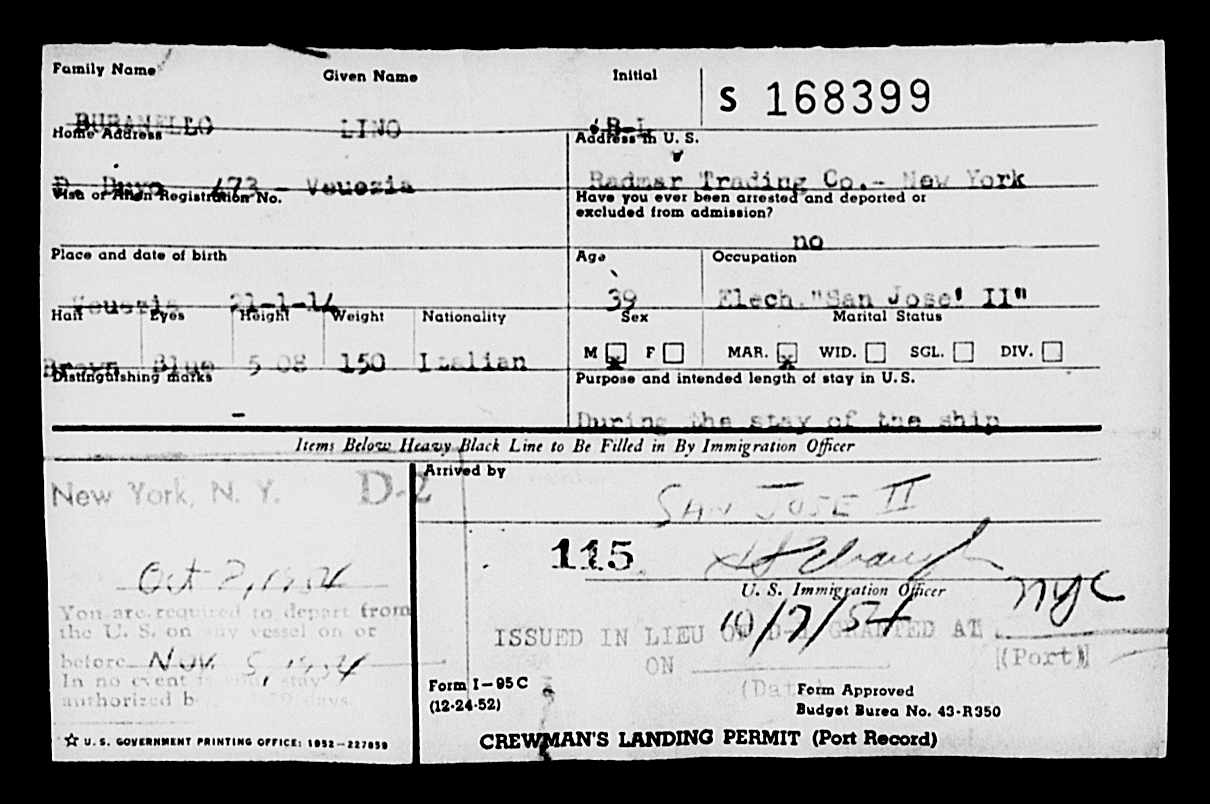 Family Name Given Name Initial S 168399
BURANELLO LINO B-L
Home Address Address in U. S.
673 - Veuezia Radmar Trading Co.- New York
Visa or Alien Registration No. Have you ever been arrested and deported or
excluded from admission?
no
Place and date of birth Age Occupation
Veuezia 21-1-14 39 Elech."San Jose' II"
Hair Eyes Height Weight Nationality Sex Marital Status
Brown Blue 5 08 150 Italian M F MAR. WID. SGL. DIV.
Distinguishing marks Purpose and intended length of stay in U. S.
- During the stay of the ship
Items Below Heavy Black Line to Be Filled in By Immigration Officer
New York, N. Y. D-2 Arrived by
SAN JOSE II
115
Oct 7, 1954 U. S. Immigration Officer
You are required to depart from
the U. S. on any vessel on or
before Nov. 5 1954
In no event is your stay
authorized days.
ISSUED IN LIEU OF GRANTED AT NYC
10/7/54
ON (Port)
(Date)
Form I-95 C
(12-24-52)
Form Approved
Budget Burea No. 43-R350
☆ U. S. GOVERNMENT PRINTING OFFICE: 1952-227859
CREWMAN'S LANDING PERMIT (Port Record)